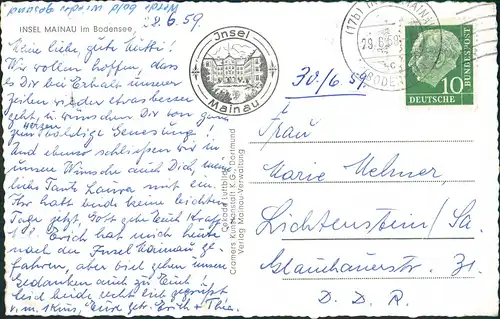 Insel
Mainau
(17b) INSEL MAINAU
BODENSEE
10
DEUTSCHE
BUNDESPOST
INSEL MAINAU im Bodensee
28.6.59.
30./6.59
Meine liebe, gute Mutti!
Wir wollen hoffen, dass
es Dir bei Erhalt unserer
Zeilen wieder etwas besser
geht, u. wünschen Dir von ganzem
Herzen baldige Genesung!
Und ebenso schließen wir in
unsere Wünsche auch Dich, meine
liebe Tante Laura mit ein.
Ihr habt beide keine leichten
Tage jetzt, Gott gebe Euch Kraft
Erich hat mich heute
nach der Insel Mainau ge-
fahren, aber viel gehen unsere
Gedanken auch zu Euch
Seid beide recht lieb gegrüßt
u. m. Küss, Eure get. Erich + Thea.
Cramers Kunstanstalt K.G., Dortmund
Verlag Mainau-Verwaltung
Frau
Marie Melzner
Lichtenstein/Sa.
Glauchauerstr. 31
D. D. R.